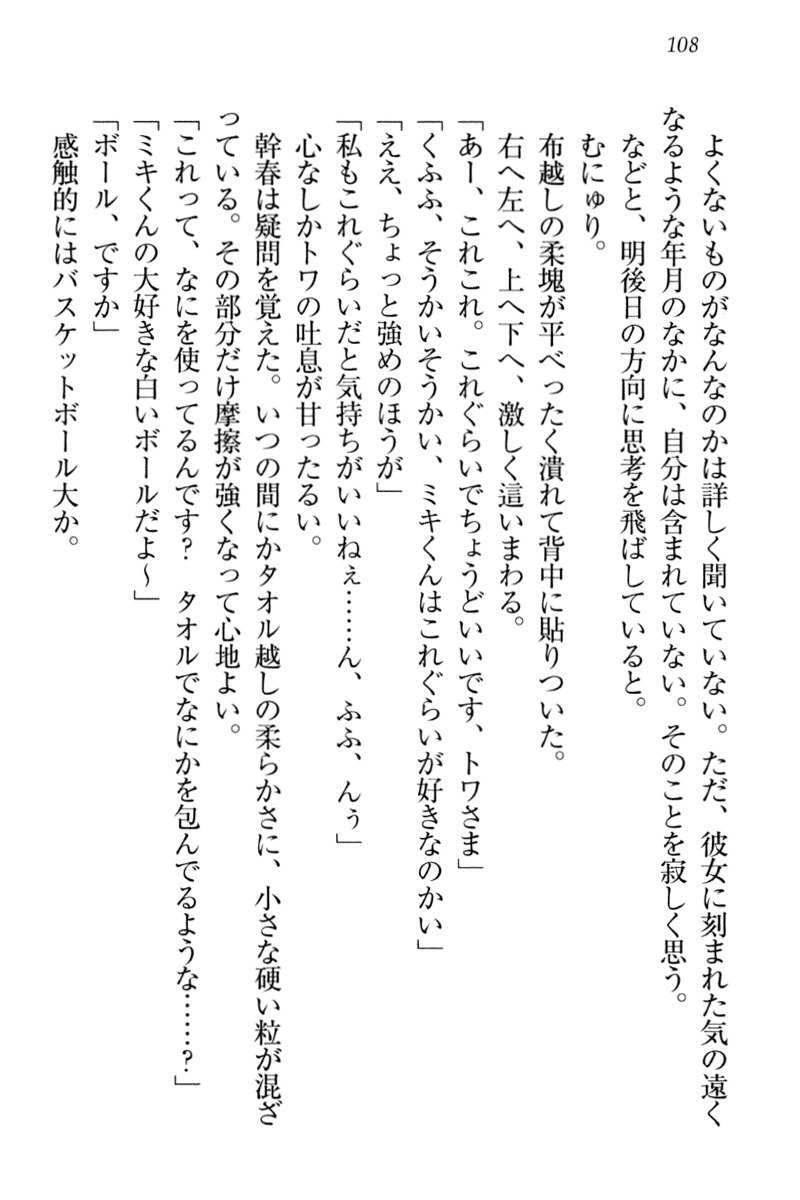 108
よくないものがなんなのかは詳しく聞いていない。ただ、彼女に刻まれた気の遠く
なるような年月のなかに、自分は含まれていない。そのことを寂しく思う。
などと、明後日の方向に思考を飛ばしていると。
むにゅり。
布越しの柔塊が平べったく潰れて背中に貼りついた。
右へ左へ、上へ下へ、激しく這いまわる。
「あー、これこれ。これぐらいでちょうどいいです、トワさま」
「くふふ、そうかいそうかい、ミキくんはこれぐらいが好きなのかい」
「ええ、ちょっと強めのほうが」
「私もこれぐらいだと気持ちがいいねぇ……ん、ふふ、んぅ」
心なしかトワの吐息が甘ったるい。
幹春は疑問を覚えた。いつの間にかタオル越しの柔らかさに、小さな硬い粒が混ざ
っている。その部分だけ摩擦が強くなって心地よい。
「これって、なにを使ってるんです?　タオルでなにかを包んでるような……?」
「ミキくんの大好きな白いボールだよ～」
「ボール、ですか」
感触的にはバスケットボール大か。